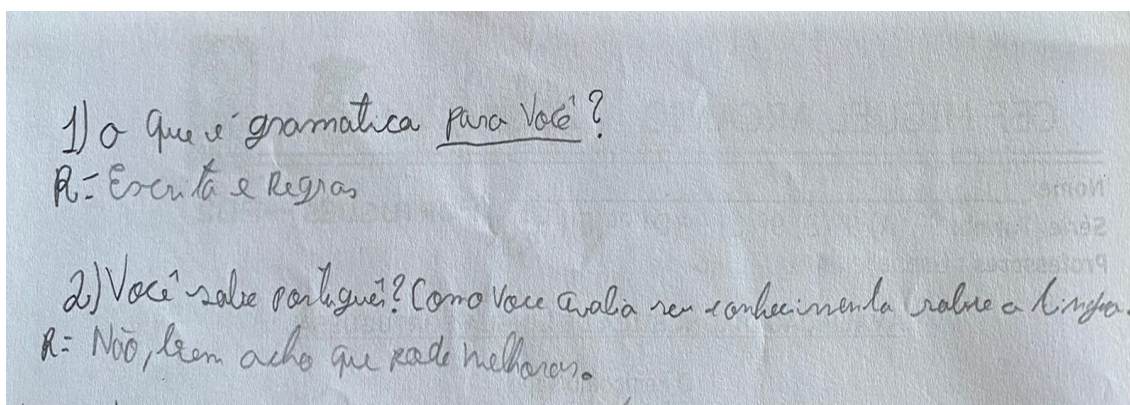 1) o que é gramatica para você?
R= Escrita e Regras
2) Você sabe português? Como voce avalia seu conhecimento sobre a lingua.
R= Não, bem acho que pode melhorar.